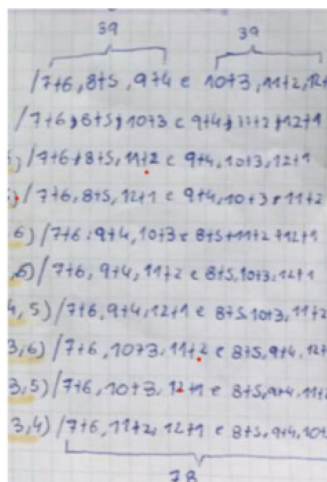 39 39
/7+6, 8+5, 9+4 e 10+3, 11+2, 12+
/7+6, 8+5, 10+3 e 9+4, 11+2, 12+1
) /7+6, 8+5, 11+2 e 9+4, 10+3, 12+1
) /7+6, 8+5, 12+1 e 9+4, 10+3, 11+2
6) /7+6, 9+4, 10+3 e 8+5, 11+2, 12+1
,6) /7+6, 9+4, 11+2 e 8+5, 10+3, 12+1
4,5) /7+6, 9+4, 12+1 e 8+5, 10+3, 11+2
3,6) /7+6, 10+3, 11+2 e 8+5, 9+4, 12+
3,5) /7+6, 10+3, 12+1 e 8+5, 9+4, 11+2
3,4) /7+6, 11+2, 12+1 e 8+5, 9+4, 10+
78